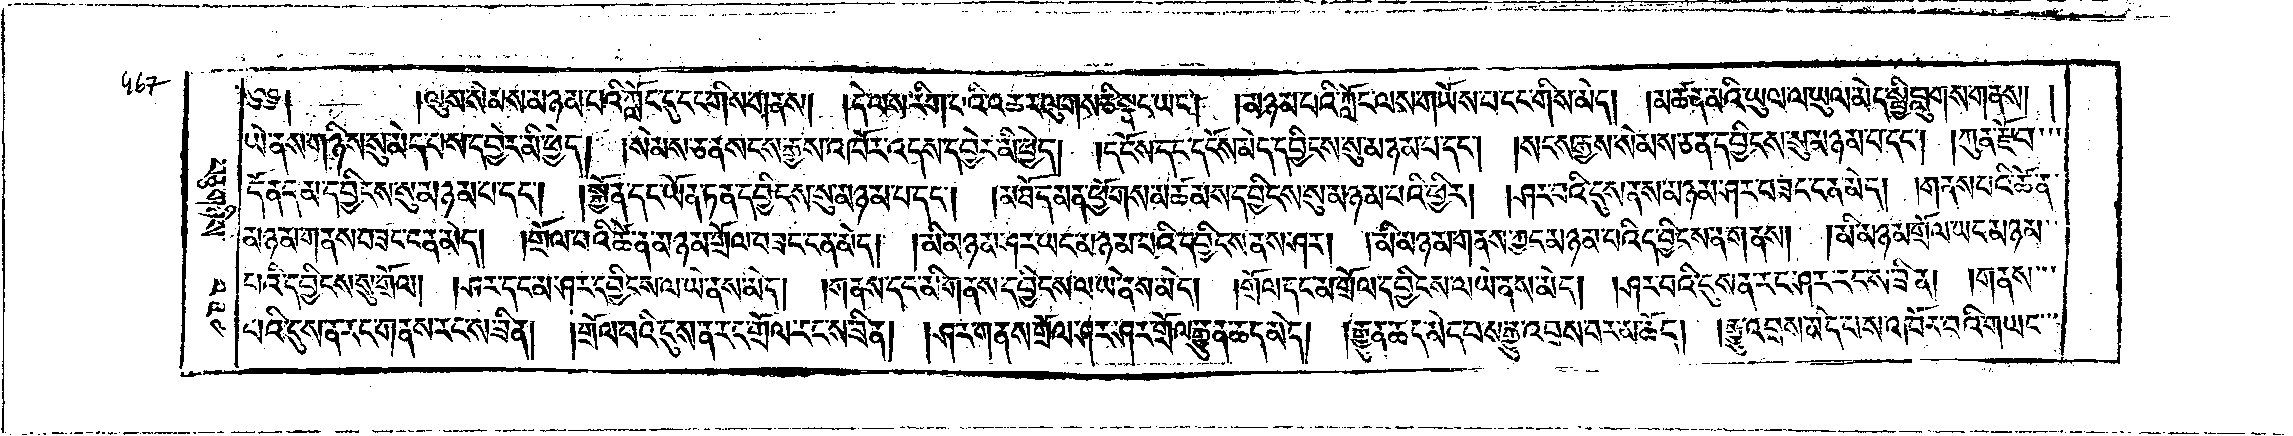 467
༄༅། །ལུས་སེམས་མ་ཉམ་པའི་ཀློང་དུ་ངང་གིས་གནས། །དེ་ལས་རིག་པའི་འཆར་ལུགས་ཅི་སྣང་ཡང་། །མཉམ་པའི་ཀློང་ལས་གཡོས་པ་ངང་གིས་མེད། །མཚོན་ནམ་འི་ཡུལ་ལ་ཡུལ་མེད་སྤྱི་བླུགས་གནས། །
ཡེ་ནས་གཉིས་སུ་མེད་པས་དབྱེར་མི་ཕྱེད། །སེམས་ཅན་སངས་རྒྱས་འཁོར་འདས་དབྱེར་མི་ཕྱེད། །དངོས་དང་དངོས་མེད་དབྱིངས་སུ་མཉམ་པ་དང་། །སངས་རྒྱས་སེམས་ཅན་དབྱིངས་སུ་མཉམ་པ་དང་། །ཀུན་རྫོབ་
དོན་དམ་དབྱིངས་སུ་མཉམ་པ་དང་། །སྐྱོན་དང་ཡོན་ཏན་དབྱིངས་སུ་མཉམ་པ་དང་། །མཐོ་དམན་ཕྱོགས་མཚམས་དབྱིངས་སུ་མཉམ་པའི་ཕྱིར། །ཤར་བའི་དུས་ནས་མཉམ་ཤར་བཟང་ངན་མེད། །གནས་པའི་ཚེ་ན་
མཉམ་གནས་བཟང་ངན་མེད། །གྲོལ་བའི་ཚེ་ན་མཉམ་གྲོལ་བཟང་ངན་མེད། །མི་མཉམ་ཤར་ཡང་མཉམ་པའི་དབྱིངས་ནས་ཤར། །མི་མཉམ་གནས་ཀྱང་མཉམ་པའི་དབྱིངས་ན་གནས། །མི་མཉམ་གྲོལ་ཡང་མཉམ་
པའི་དབྱིངས་སུ་གྲོལ། །ཤར་དང་མ་ཤར་དབྱིངས་ལ་ཡེ་ནས་མེད། །གནས་དང་མི་གནས་དབྱིངས་ལ་ཡེ་ནས་མེད། །གྲོལ་དང་མ་གྲོལ་དབྱིངས་ལ་ཡེ་ནས་མེད། །ཤར་བའི་དུས་ན་རང་ཤར་རང་ས་ཟིན། །གནས་
པའི་དུས་ན་རང་གནས་རང་ས་ཟིན། །གྲོལ་བའི་དུས་ན་རང་གྲོལ་རང་ས་ཟིན། །ཤར་གནས་གྲོལ་ཤར་ཤར་གྲོལ་རྒྱུན་ཆད་མེད། །རྒྱུན་ཆད་མེད་པས་རྒྱུ་འབྲས་བར་མ་ཆོད། །རྒྱུ་འབྲས་མེད་པས་འཁོར་བའི་གཡང་